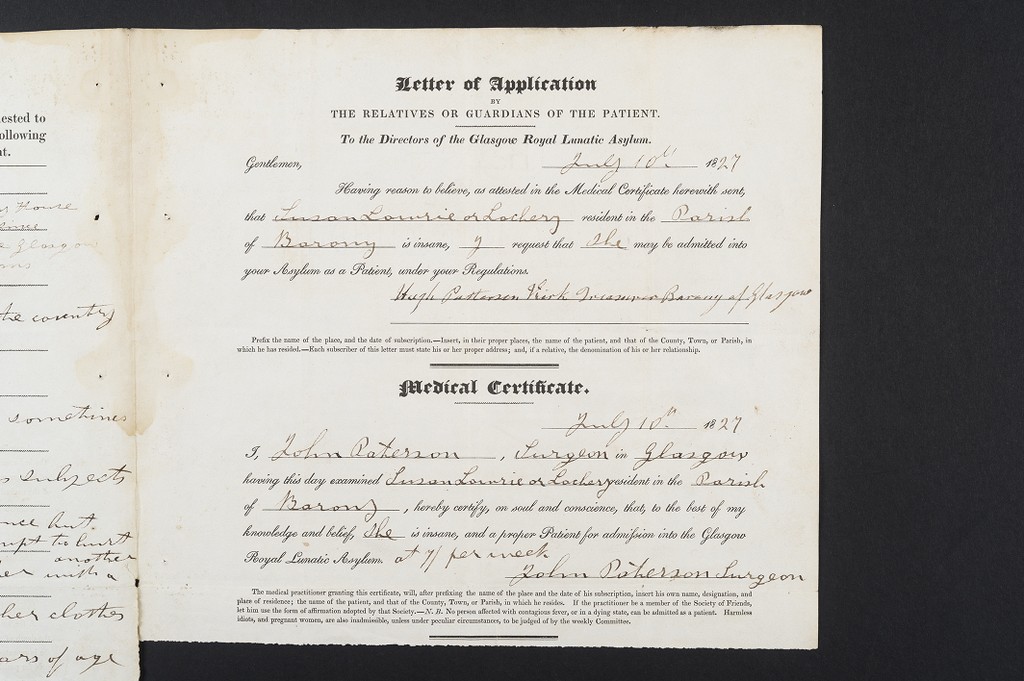 ested to
ollowing
nt.
House
Glasgow
the country
sometimes
subjects
another
with a
her clothes
ars of age
Letter of Application
BY
THE RELATIVES OR GUARDIANS OF THE PATIENT.
To the Directors of the Glasgow Royal Lunatic Asylum.
Gentlemen, July 10th 1827
Having reason to believe, as attested in the Medical Certificate herewith sent,
that Susan Lowrie or Lochery resident in the Parish
of Barony is insane, I request that She may be admitted into
your Asylum as a Patient, under your Regulations.
Hugh Patterson Kirk Treasurer Barony of Glasgow
Prefix the name of the place, and the date of subscription.—Insert, in their proper places, the name of the patient, and that of the County, Town, or Parish, in
which he has resided.—Each subscriber of this letter must state his or her proper address; and, if a relative, the denomination of his or her relationship.
Medical Certificate.
July 10th 1827
I, John Paterson, Surgeon in Glasgow
having this day examined Susan Lowrie or Lochery resident in the Parish
of Barony, hereby certify, on soul and conscience, that, to the best of my
knowledge and belief, She is insane, and a proper Patient for admission into the Glasgow
Royal Lunatic Asylum. at 7/ per week
John Paterson Surgeon
The medical practitioner granting this certificate, will, after prefixing the name of the place and the date of his subscription, insert his own name, designation, and
place of residence; the name of the patient, and that of the County, Town, or Parish, in which he resides. If the practitioner be a member of the Society of Friends,
let him use the form of affirmation adopted by that Society.—N. B. No person affected with contagious fever, or in a dying state, can be admitted as a patient. Harmless
idiots, and pregnant women, are also inadmissible, unless under peculiar circumstances, to be judged of by the weekly Committee.